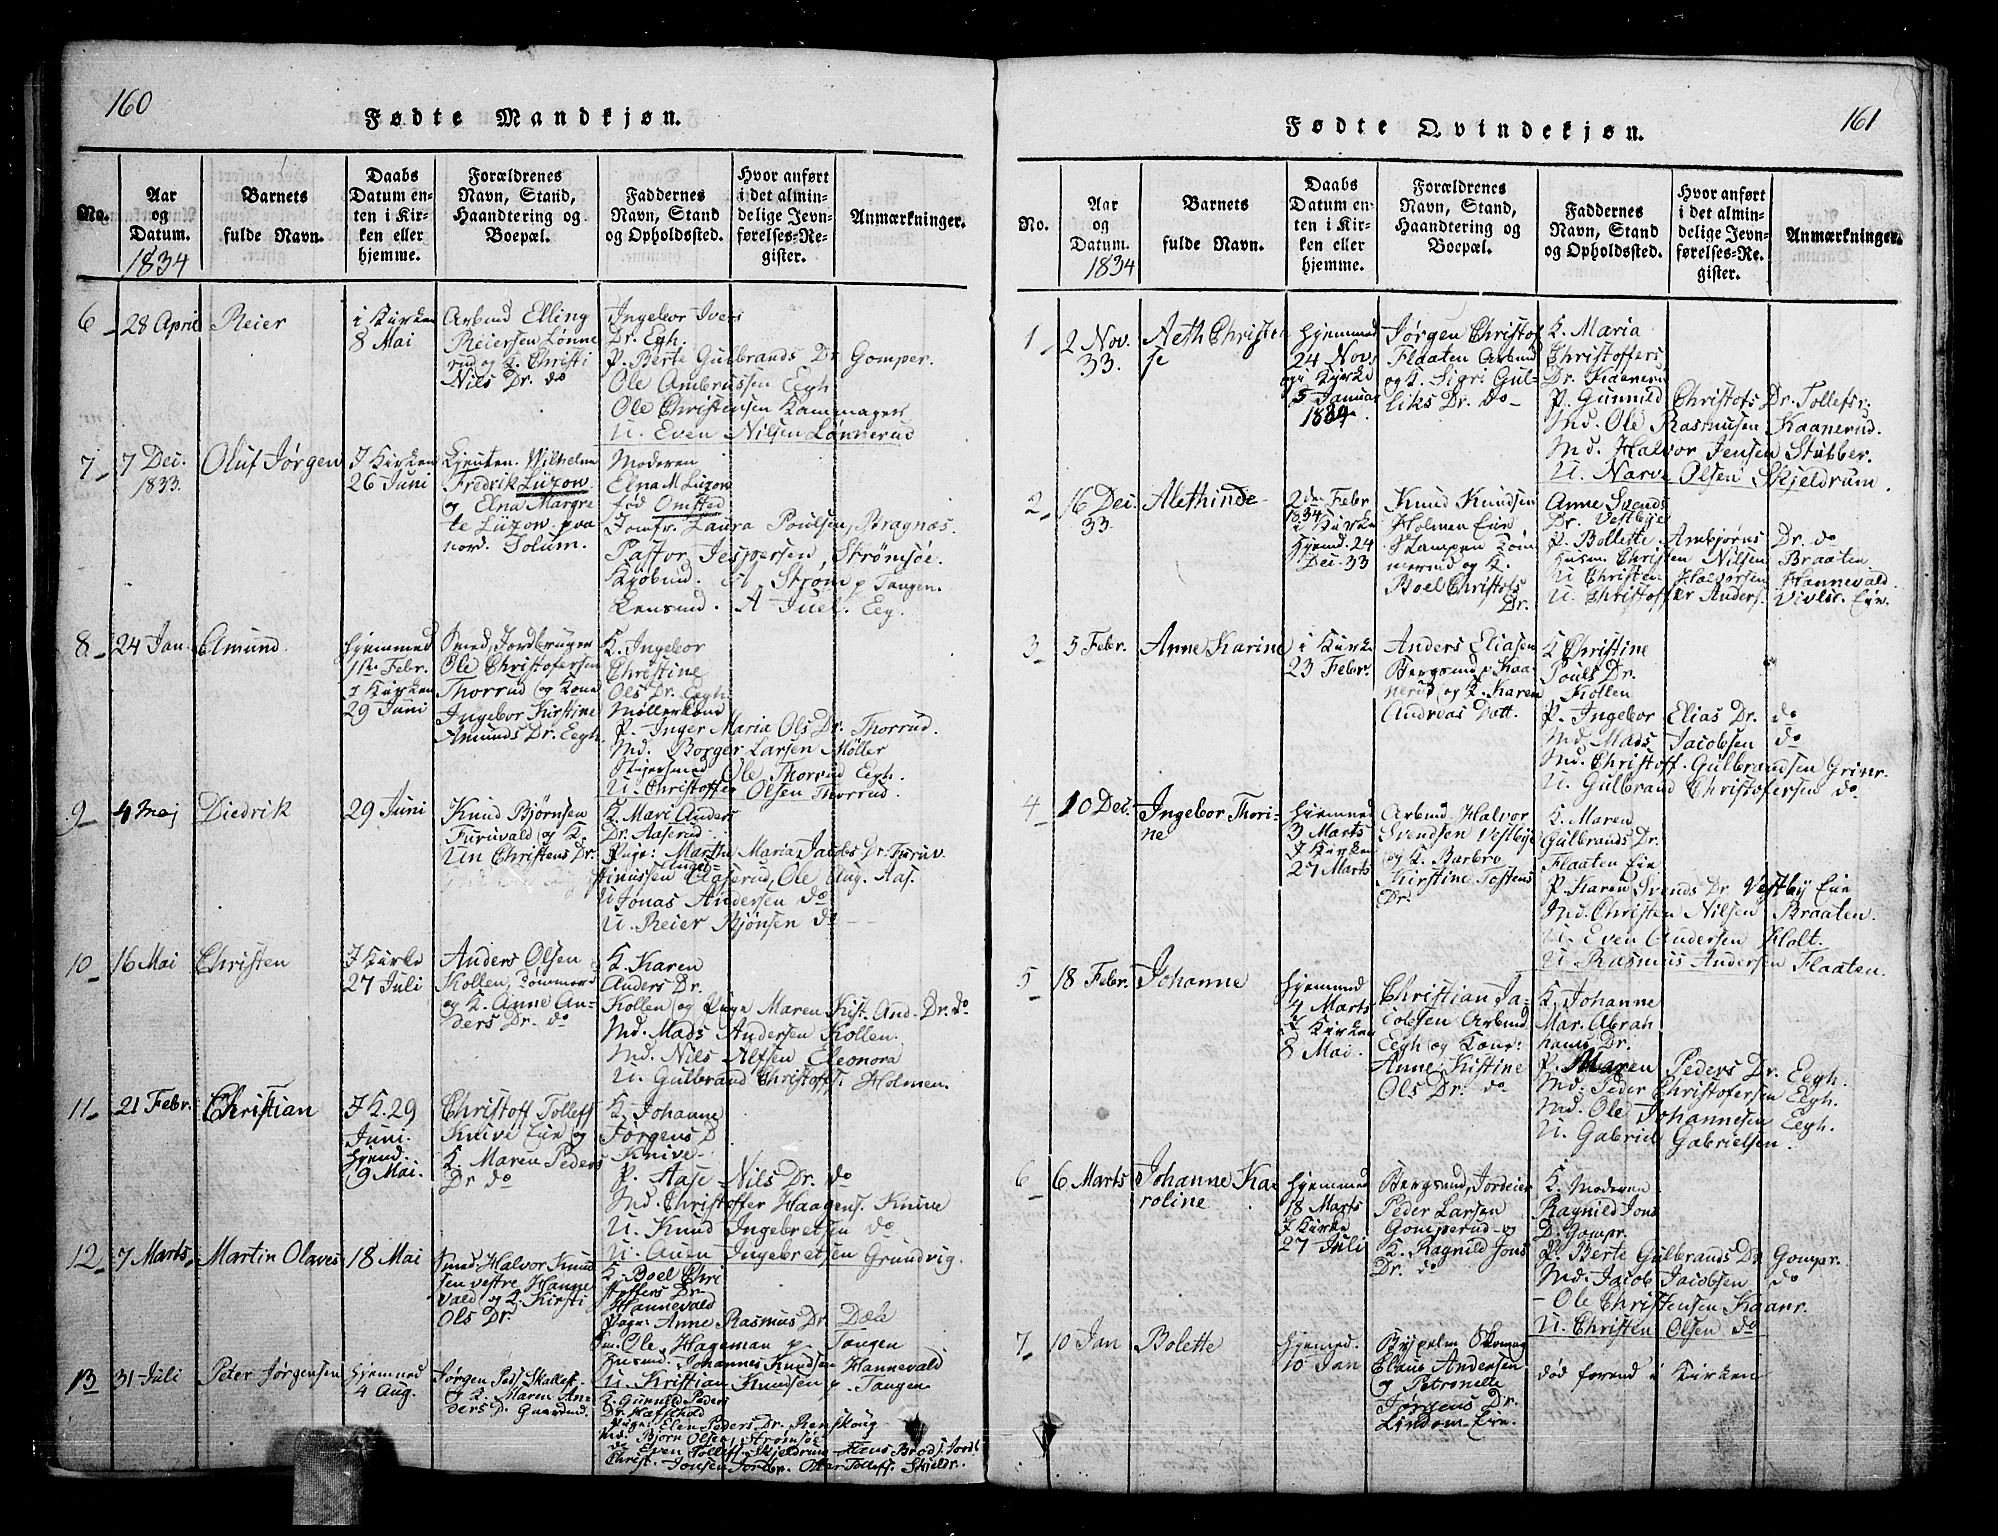 160
Fødte Mandkjøn.
No.
Aar
og
Datum.
1834
Barnets
fulde Navn.
Daabs
Datum en-
ten i Kir-
ken eller
hjemme.
Forældrenes
Navn, Stand,
Haandtering og
Boepæl.
Faddernes
Navn, Stand
og Opholdssted.
Hvor anført
i det almin-
delige Jevn-
førelses-Re-
gister.
Anmærkninger.
6
28 April
Reier
i Kirken
8 Mai
Arbmd Elling
Reiersen Lønne
rud og K. Christi
Nils Dr. do
Ingebor Ivers
Dr. Egh.
P. Berte Gulbrands Dr. Gomper.
Ole Ambrussen Eegh
Ole Christensen Kammager
U. Even Nilsen Lønnerud
7
7 Dec.
1833.
Oluf Jørgen
I Kirken
26 Juni
Lieuten. Wilhelm
Fredrik Lüzow
og Elna Margre
te Lüzow paa
nord. Solum.
Moderen
Elna M Lüzow
fød Omsted
Jomfr. Laura Poulsen, Bragnæs.
Pastor Jespersen, Strømsöe
Kjøbmd. Strøm p Tangen.
Lensmd. A Juel. Eeg.
8
24 Jan
Amund
Hjemmed
11te Febr.
I Kirken
29 Juni
Smed, Jordbruger
Ole Christofersen
Thorrud og Kone
Ingebor Kirstine
Amunds Dr. Eegh
K. Ingebor
Christine
Ols Dr. Eegh
Møllerkone
P. Inger Maria Ols Dr. Thorrud.
Md. Borger Larsen Møller
Ole Thorrud Eegh.
U. Christoffer Olsen Thorrud.
9
4 Maj
Diedrik
29 Juni
Knud Bjørnsen
Furuvald og K.
Un Christens Dr.
K. Mari Anders
Dr. Aaserud
Pige: Marthe Maria Jacobs Dr. Furuv.
Hinussen Aaserud, Ole Aug. Aas.
U Jonas Andersen do
U. Reier Bjønsen do
10
16 Mai
Christen
I Kirke
27 Juli
Anders Olsen
Kollen,
og K. Anne An-
ders Dr. do
K. Karen
Anders Dr.
Kollen og Pige Maren Kist. And. Dr. do
Md. Mads Andersen Kollen.
Md. Nils Alfsen Eleonora
U. Gulbrand Christoffs. Holmen.
11
21 Febr.
Christian
I K. 29
Juni.
Hjemd
9 Mai.
Christoff Tolleff
Knive Eie og
K. Maren Peders
Dr do
K. Johanne
Jørgens D
Knive
P. Aase Nils Dr. do
Md. Christoffer Haagens. Knive
U. Knud Ingebretsen do
U. Auen Ingebretsen Grundvig.
12
7 Marts
Martin Olaves
18 Mai
Smed Halvor Knud
sen vestre Hanne
vald og K. Kirsti
Ols Dr.
K. Boel Chri
stoffers Dr.
Hannevald
Page: Anne Rasmus Dr. Dæle
Ole Hageman p. Tangen
Johannes Knudsen Hannevald
U. Kristian Knudsen p. Tangen
13
31 Juli
Peter Jørgensen
Hjemmed
4 Aug.
Jørgen Peds Skallest.
og K. Maren An-
ders D.
K. Gunild Peders
Dr.
Pige: Elen Peders Dr. Renskoug
Md. Bjørn Olsen, Strømsøe
do Even Tolleffs Skjeldrum Hans Brøds. Jordb
Christ. Jonsen Jordbr. Tolleffs. Skjeldr.
161
Fødte Qvindekjøn.
No.
Aar
og
Datum.
1834
Barnets
fulde Navn.
Daabs
Datum en-
ten i Kir-
ken eller
hjemme.
Forældrenes
Navn, Stand,
Haandtering og
Boepæl.
Faddernes
Navn, Stand
og Opholdssted.
Hvor anført
i det almin-
delige Jevn-
førelses-Re-
gister.
Anmærkninger.
1
2 Nov.
33.
Aeth Christen
se
Hjemmed
24 Nov.
og i Kirke
5 Januar
1834
Jørgen Christof
Flaaten Arbmd
og K. Sigri Gul-
liks Dr. do
K. Maria
Christoffers
Dr. Kaanerud
P. Gunnild Christofs Dr. Tollefsr.
Md. Ole Rasmusen Kaanerud.
Md. Halvor Jensen Stubber.
U. Narve Olsen Skjeldrum.
2
16 Dec.
33.
Alethinde
2den Febr
1834
i Kirke
Hjemd. 24
Dec. 33
Knud Knudsen
Holmen Eie
Stampen
merud og K.
Boel Christofs
Dr.
Anne Svends
Dr. Vestbye
P. Bollette Ambjørns Dr. do
Husm. Christen Nilsen Braaten
U Christen Halvorsen Hannevald
U. Christoffer Anders. Eie.
3
5 Febr.
Anne Karine
i Kirk
23 Febr.
Anders Eliasen
Bergsmd p Kaa
nerud og K. Karen
Andreas Datt.
K Christine
Pouls Dr.
Kollen
P. Ingebor Elias Dr. do
Md Mads Jacobsen do
Md. Christoff. Gulbrandsen Grinr.
U. Gulbrand Christofersen do
4
10 Dec.
Ingebor Thori-
ne
Hjemmed
3 Marts
I Kirken
27 Marts
Arbmd. Halvor
Svendsen Vestbye
og K. Barbro
Kirstine Tostens
Dr.
K. Maren
Gulbrands Dr.
Flaaten Eie
P. Karen Svends Dr. Vestby Eie
Md. Christen Nilsen Braaten.
U. Even Andersen Holt.
U. Rasmus Andersen Flaaten.
5
18 Febr.
Johanne
Hjemmed
4 Marts
I Kirken
8 Mai.
Christian Ja-
cobsen Arbmd
Eegh og Kone:
Anne Kistine
Ols Dr. do
K. Johanne
Mar. Abrah
hams Dr.
P. Maren Peders Dr. Eegh.
Md. Peder Christofersen Eegh.
Md. Ole Johannesen Eegh.
U. Gabriel Gabrielsen.
6
6 Marts
Johanne Ka
roline
Hjemmed
18 Marts
I Kirke
27 Juli
Bergsmd, Jordeier
Peder Larsen
Gomperud og
K. Ragnild Jons
Dr. do
K. Moderen
Ragnild Jons
D. Gompr.
P. Berte Gulbrands Dr. Gompr.
Md. Jacob Jacobsen do
Ole Christensen Kaanr.
U. Christen Olsen do
7
10 Jan
Bolette
Hjemmed.
10 Jan
Claus Andersen
og Petronelle
Jørgens Dr.
Lindom Eie.
død forend i Kirken